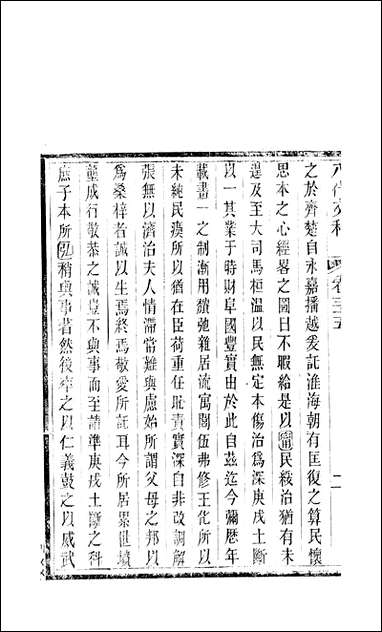 八代文粹 卷三五 二
之於齊楚自永嘉播越爰託淮海朝有匡復之算民懷
思本之心經畧之圖日不暇給是以甯民綏治猶有未
遑及至大司馬桓溫以民無定本傷治爲深庚戌土斷
以一其業于時財阜國豐實由於此自茲迄今彌歷年
載畫一之制漸用頽弛雜居流寓閭伍弗修王化所以
未純民瘼所以猶在臣荷重任恥責實深自非改調解
張無以濟治夫人情滯常難與慮始所謂父母之邦以
爲桑梓者誠以生焉終焉敬愛所託耳今所居累世墳
壠成行敬恭之誠豈不與事而至請準庚戌土斷之科
庶子本所弘稍與事著然後率之以仁義鼓之以威武